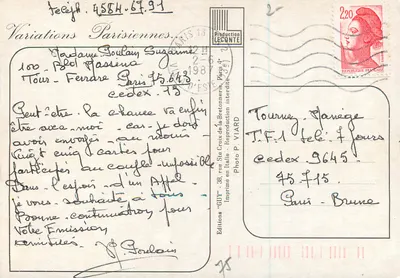 Teleph. 4584-67.91
Variations Parisiennes
Madame Poulain Suzanne
100 - Bld Massena
Tour - Ferrare Paris 75.643
cedex - 13
Peut-être la chance va enfin
être avec moi - car je dois
avoir envoyés - au moins
cinq cartes pour
participer au couple impossible
Dans l'espoir d'un Appel
je vous souhaite à tous
Bonne continuation pour
Votre Emission
S. Poulain
Production
LECONTE
Editions "GUY" - 38, rue Ste Croix de la Bretonnerie, Paris 4e
Imprimé en Italie - Reproduction interdite
Photo P. VIARD
2,20
Tournez Manège
T.F.1 télé 7 jours
cedex 9645
75715
Paris - Brune
75